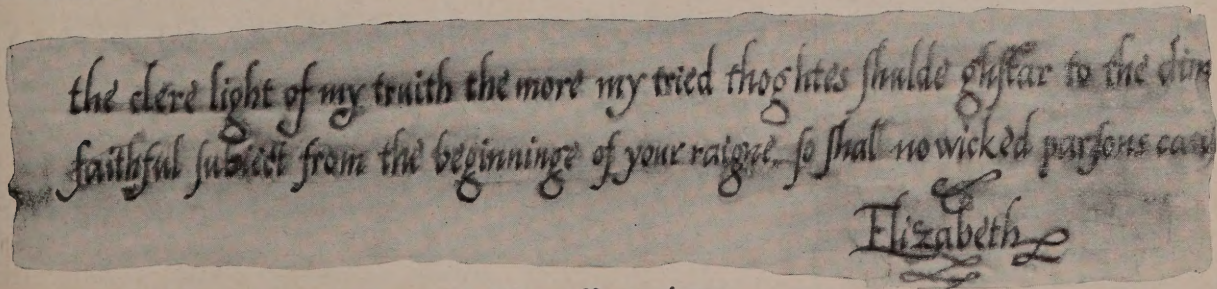 the clere light of my truith the more my tried thoghtes shulde glistar to the dim
faithful subiect from the beginninge of your raigne so shal no wicked parsons cau
Elizabeth